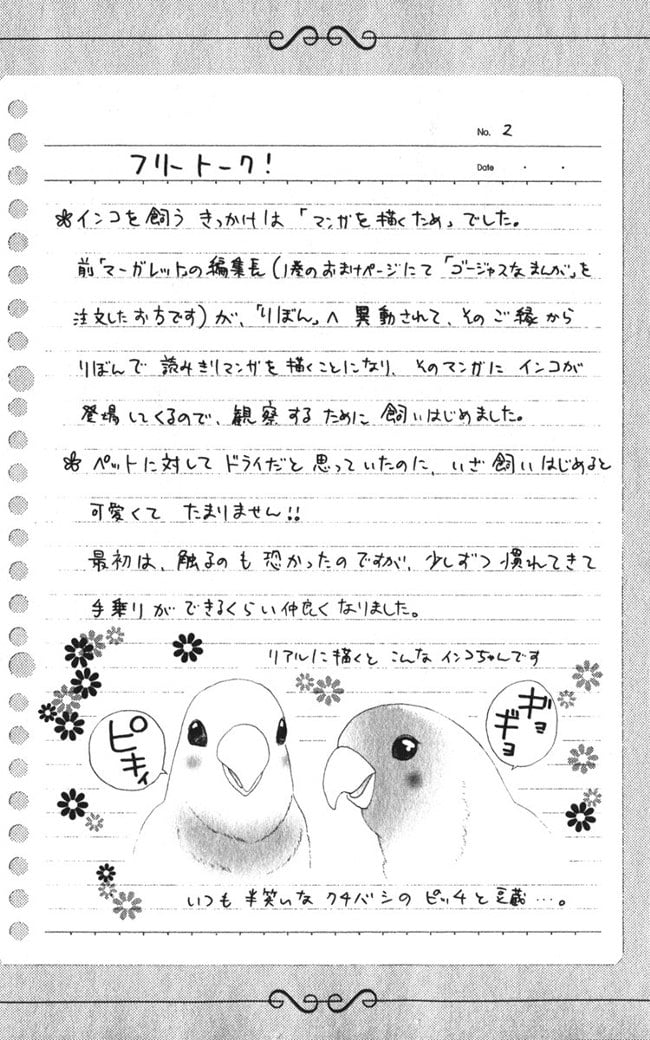 No. 2
フリートーク!
Date ・ ・
❀インコを飼うきっかけは「マンガを描くため」でした。
前「マーガレット」の編集長(1巻のおまけページにて「ゴージャスなまんが」を
注文したお方です)が、「りぼん」へ異動されて、そのご縁から
りぼんで読みきりマンガを描くことになり、そのマンガにインコが
登場してくるので、観察するために飼いはじめました。
❀ペットに対してドライだと思っていたのに、いざ飼いはじめると
可愛くてたまりません!!
最初は、触るのも恐かったのですが、少しずつ慣れてきて
手乗りができるくらい仲良くなりました。
リアルに描くとこんなインコちゃんです
ピキィ
ギョギョ
いつも半笑いなクチバシのピッチと豆蔵…。